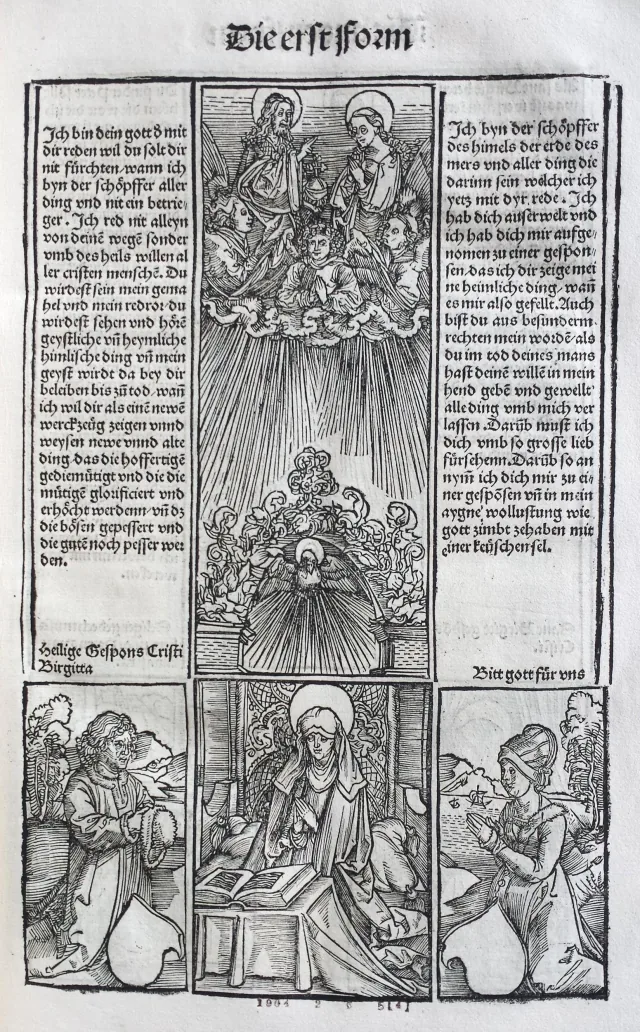 Die erst Form
Ich bin dein gott d̕ mit
dir reden wil du solt dir
nit fürchten wann ich
byn der schöpffer aller
ding vnd nit ein betrie-
ger . Ich red nit alleyn
von deinē wegē sonder
vmb des heils willen al
ler cristen menschē. Du
wirdest sein mein gema
hel vnd mein redror du
wirdest sehen vnd hörē
geystliche vn̄ heymliche
himlische ding vn̄ mein
geyst wirdt da bey dir
beleiben bis zū tod, wan̄
ich wil dir als einē newē
werckzeüg zeigen vnnd
weysen newe vnnd alte
ding das die hoffertigē
gediemütigt vnd die die
mütigē glorificiert vnd
erhöcht werdenn vn̄ dz
die bösen gepessert vnd
die gutē noch pesser wer
den.
Heilige Gespons Cristi
Birgitta
Ich byn der schöpffer
des himels der erde des
mers vnd aller ding die
darinn sein wölcher ich
yetz mit dyr rede . Ich
hab dich auserwelt vnd
ich hab dich mir aufge-
nomen zu einer gespon-
sen das ich dir zeige mei
ne heimliche ding, wan̄
es mir also gefelt. Auch
bist du aus besunderm
rechten mein wordē als
du im tod deines mans
hast deinē willē in mein
hend gebē vnd gewellt
alle ding vmb mich ver
lassen . Darūb must ich
dich vmb so grosse lieb
fürsehenn. Darūb so an
nym̄ ich dich mir zu ei-
ner gespōsen vn̄ in mein
aygne wollustung wie
gott zimbt zehaben mit
einer keüschen sel.
Bitt gott für vns
1904 2 6 5[4]